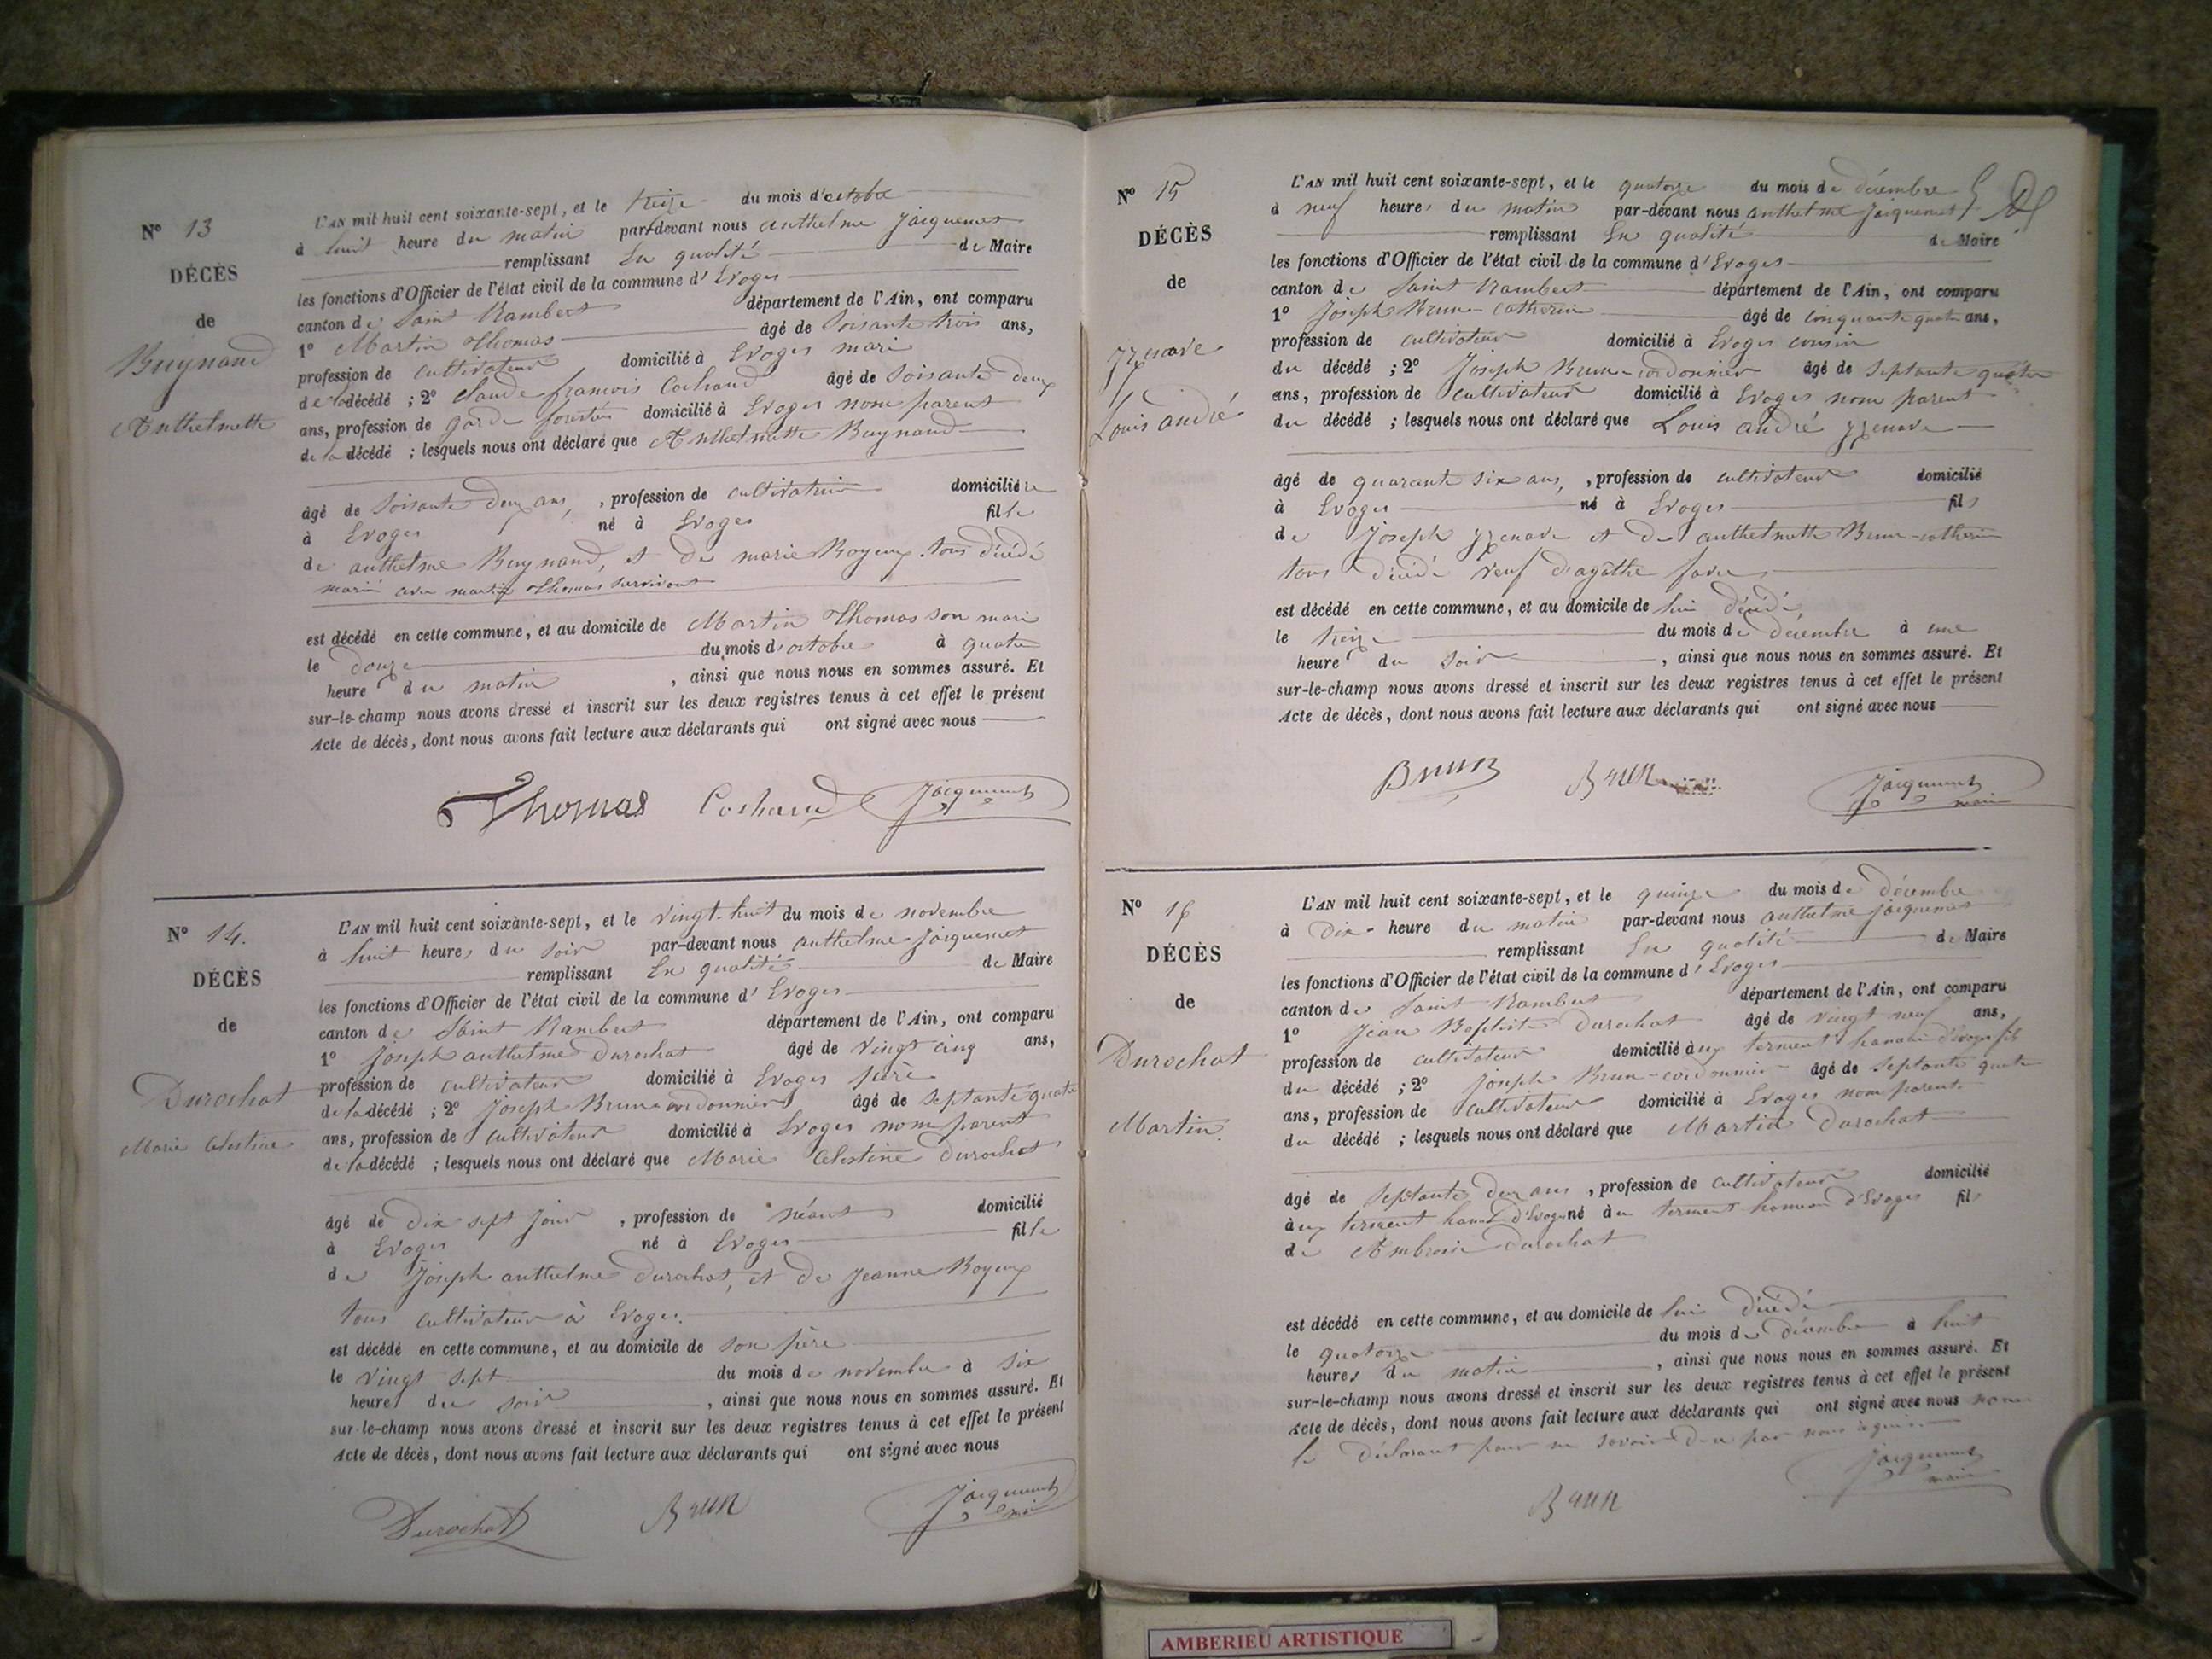 Nº 13
DÉCÈS
de
Buynand
Anthelmette
L'AN mil huit cent soixante-sept, et le treize du mois d'octobre
à huit heure du matin par-devant nous anthelme Jacquemet
remplissant En qualité de Maire
les fonctions d'Officier de l'état civil de la commune d'Evoges
canton de Saint Rambert département de l'Ain, ont comparu
1º Martin Thomas âgé de soisante trois ans,
profession de cultivateur domicilié à Evoges mari
de la décédé ; 2º claude francois Cochand âgé de soisante deux
ans, profession de garde forestier domicilié à Evoges nom parent
de la décédé ; lesquels nous ont déclaré que Anthelmette Buynand
âgé de soisante deux ans, profession de cultivatrice domicilière
à Evoges né à Evoges fille
de anthelme Buynand, et de marie Royeux tous décédé
marié avec martin Thomas survivant
est décédé en cette commune, et au domicile de Martin Thomas son mari
le douze du mois d'octobre à quatre
heure du matin, ainsi que nous nous en sommes assuré. Et
sur-le-champ nous avons dressé et inscrit sur les deux registres tenus à cet effet le présent
Acte de décès, dont nous avons fait lecture aux déclarants qui ont signé avec nous
Thomas Cochand Jacquemet
Nº 14.
DÉCÈS
de
Durochat
Marie Celestine
L'AN mil huit cent soixante-sept, et le vingt-huit du mois de novembre
à huit heures du soir par-devant nous anthelme Jacquemet
remplissant En qualité de Maire
les fonctions d'Officier de l'état civil de la commune d'Evoges
canton de Saint Rambert département de l'Ain, ont comparu
1º Joseph anthelme Durochat âgé de vingt cinq ans,
profession de cultivateur domicilié à Evoges père
de la décédé ; 2º Joseph Brun-cordonnier âgé de septante quatre
ans, profession de cultivateur domicilié à Evoges nom parent
de la décédé ; lesquels nous ont déclaré que Marie Celestine Durochat
âgé de dix sept jour, profession de néant domicilié
à Evoges né à Evoges fille
de Joseph anthelme Durochat, et de Jeanne Royeux
tous cultivateur à Evoges.
est décédé en cette commune, et au domicile de son père
le vingt sept du mois de novembre à six
heure du soir, ainsi que nous nous en sommes assuré. Et
sur-le-champ nous avons dressé et inscrit sur les deux registres tenus à cet effet le présent
Acte de décès, dont nous avons fait lecture aux déclarants qui ont signé avec nous
Durochat Brun Jacquemet maire
Nº 15
DÉCÈS
de
Louis andré
L'AN mil huit cent soixante-sept, et le quatorze du mois de décembre
à neuf heures du matin par-devant nous anthelme Jacquemet
remplissant En qualité de Maire
les fonctions d'Officier de l'état civil de la commune d'Evoges
canton de Saint Rambert département de l'Ain, ont comparu
1º Joseph Brun-catherin âgé de cinquante quatre ans,
profession de cultivateur domicilié à Evoges cousin
du décédé ; 2º Joseph Brun-cordonnier âgé de septante quatre
ans, profession de cultivateur domicilié à Evoges nom parent
du décédé ; lesquels nous ont déclaré que Louis andré
âgé de quarante six ans, profession de cultivateur domicilié
à Evoges né à Evoges fils
de Joseph et de anthelmette Brun-catherin
tous décédé veuf d'agathe favre
est décédé en cette commune, et au domicile de lui décédé,
le treize du mois de décembre à une
heure du soir, ainsi que nous nous en sommes assuré. Et
sur-le-champ nous avons dressé et inscrit sur les deux registres tenus à cet effet le présent
Acte de décès, dont nous avons fait lecture aux déclarants qui ont signé avec nous
Brun Brun Jacquemet maire
Nº 16
DÉCÈS
de
Durochat
Martin.
L'AN mil huit cent soixante-sept, et le quinze du mois de décembre
à dix heure du matin par-devant nous anthelme Jacquemet
remplissant En qualité de Maire
les fonctions d'Officier de l'état civil de la commune d'Evoges
canton de Saint Rambert département de l'Ain, ont comparu
1º Jean Baptiste Durochat âgé de vingt neuf ans,
profession de cultivateur domicilié à hameau d'Evoges fils
du décédé ; 2º Joseph Brun-cordonnier âgé de septante quatre
ans, profession de cultivateur domicilié à Evoges nom parent
du décédé ; lesquels nous ont déclaré que Martin Durochat
âgé de septante deux ans, profession de cultivateur domicilié
d'Evoges né hameau d'Evoges fils
de Ambroise Durochat
est décédé en cette commune, et au domicile de lui décédé
le quatorze du mois de décembre à huit
heures du matin, ainsi que nous nous en sommes assuré. Et
sur-le-champ nous avons dressé et inscrit sur les deux registres tenus à cet effet le présent
Acte de décès, dont nous avons fait lecture aux déclarants qui ont signé avec nous non
le déclarant pour ne savoir de ce par nous requis
Brun Jacquemet maire
AMBERIEU ARTISTIQUE